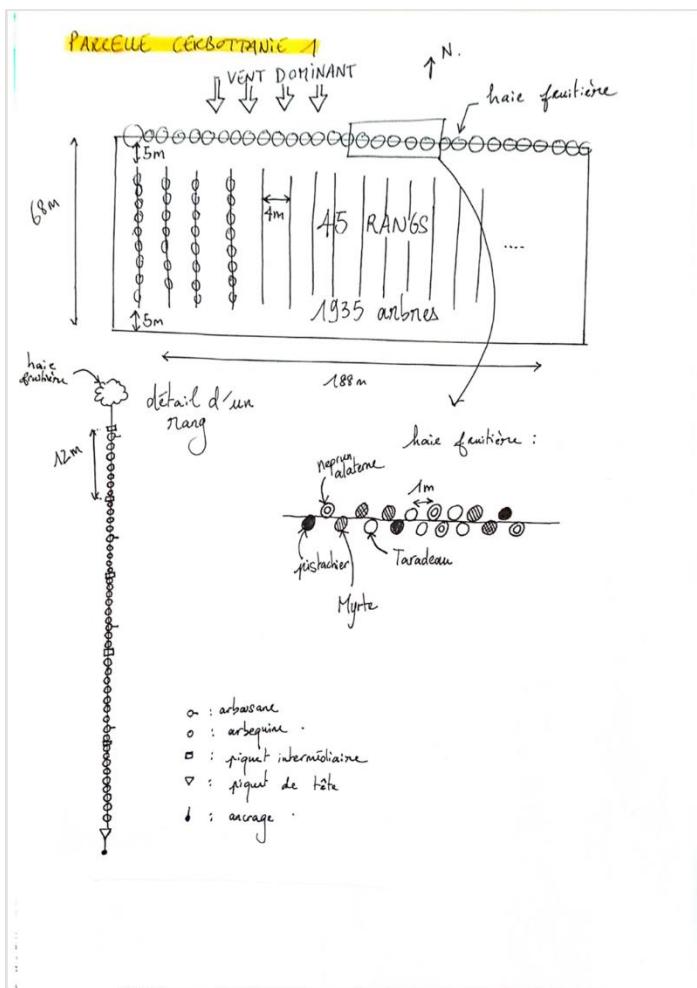 PARCELLE CERBOTTANIE 1
VENT DOMINANT
N.
haie fruitière
5m
68m
4m
45 RANGS
....
1935 arbres
5m
188m
haie fruitière
détail d'un rang
12m
haie fruitière :
nerprun alaterne
1m
pistachier
Taradeau
Myrte
: arbosane
: arbequine .
: piquet intermédiaire
: piquet de tête
: ancrage .